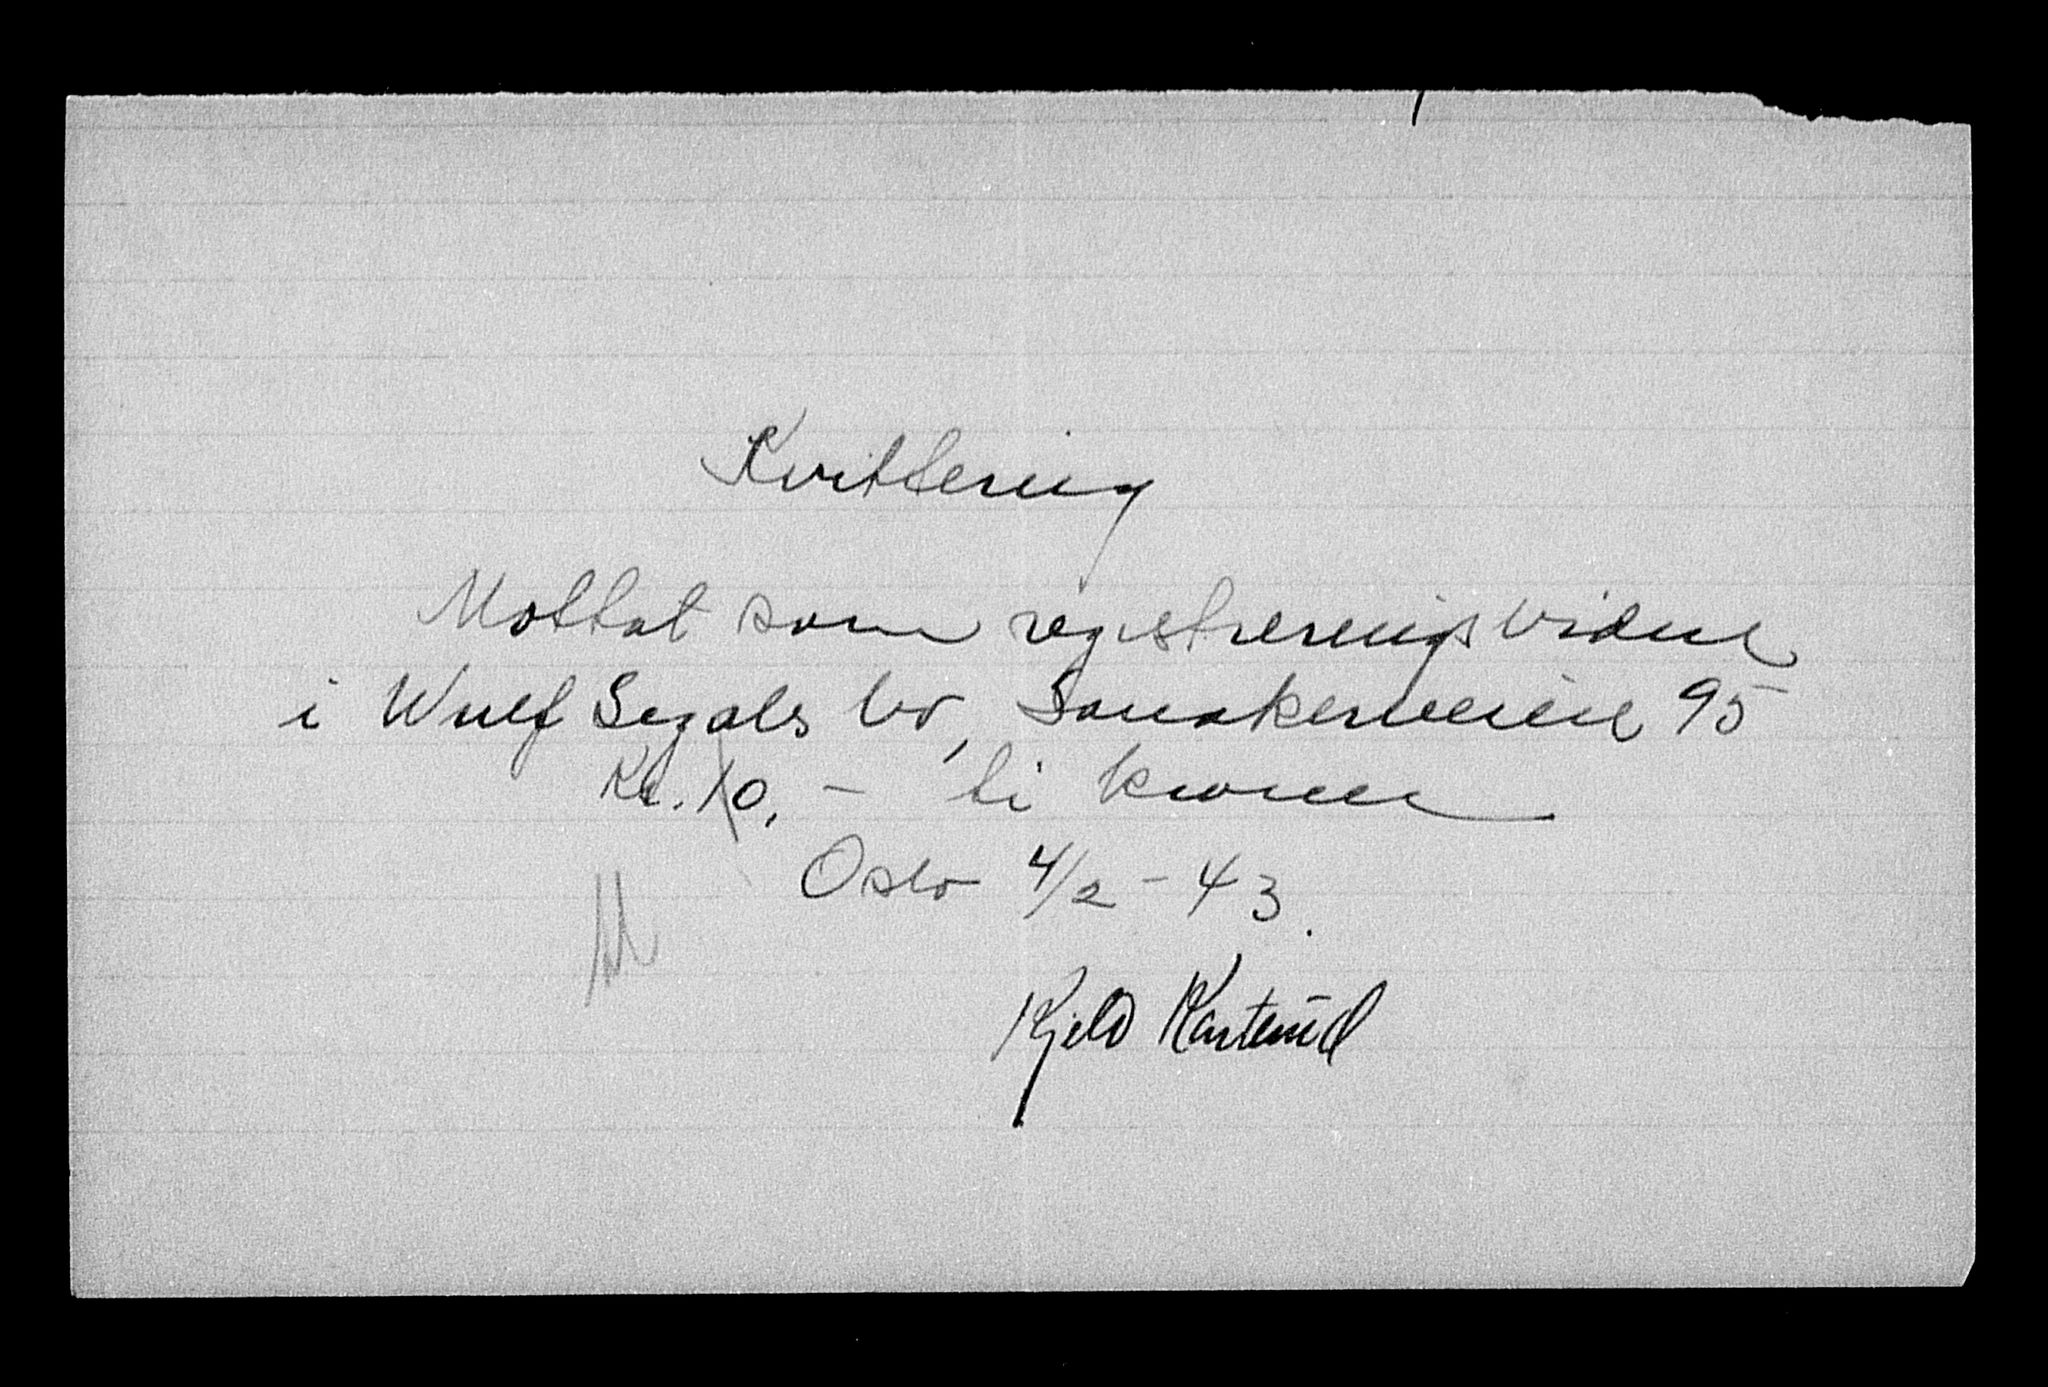 Kvittering
Mottat som registreringsvidne
i Wulf Segals bo, Sanakerveien 95
Kr. 10,- ti kroner
Oslo 4/2 - 43.
Kjeld